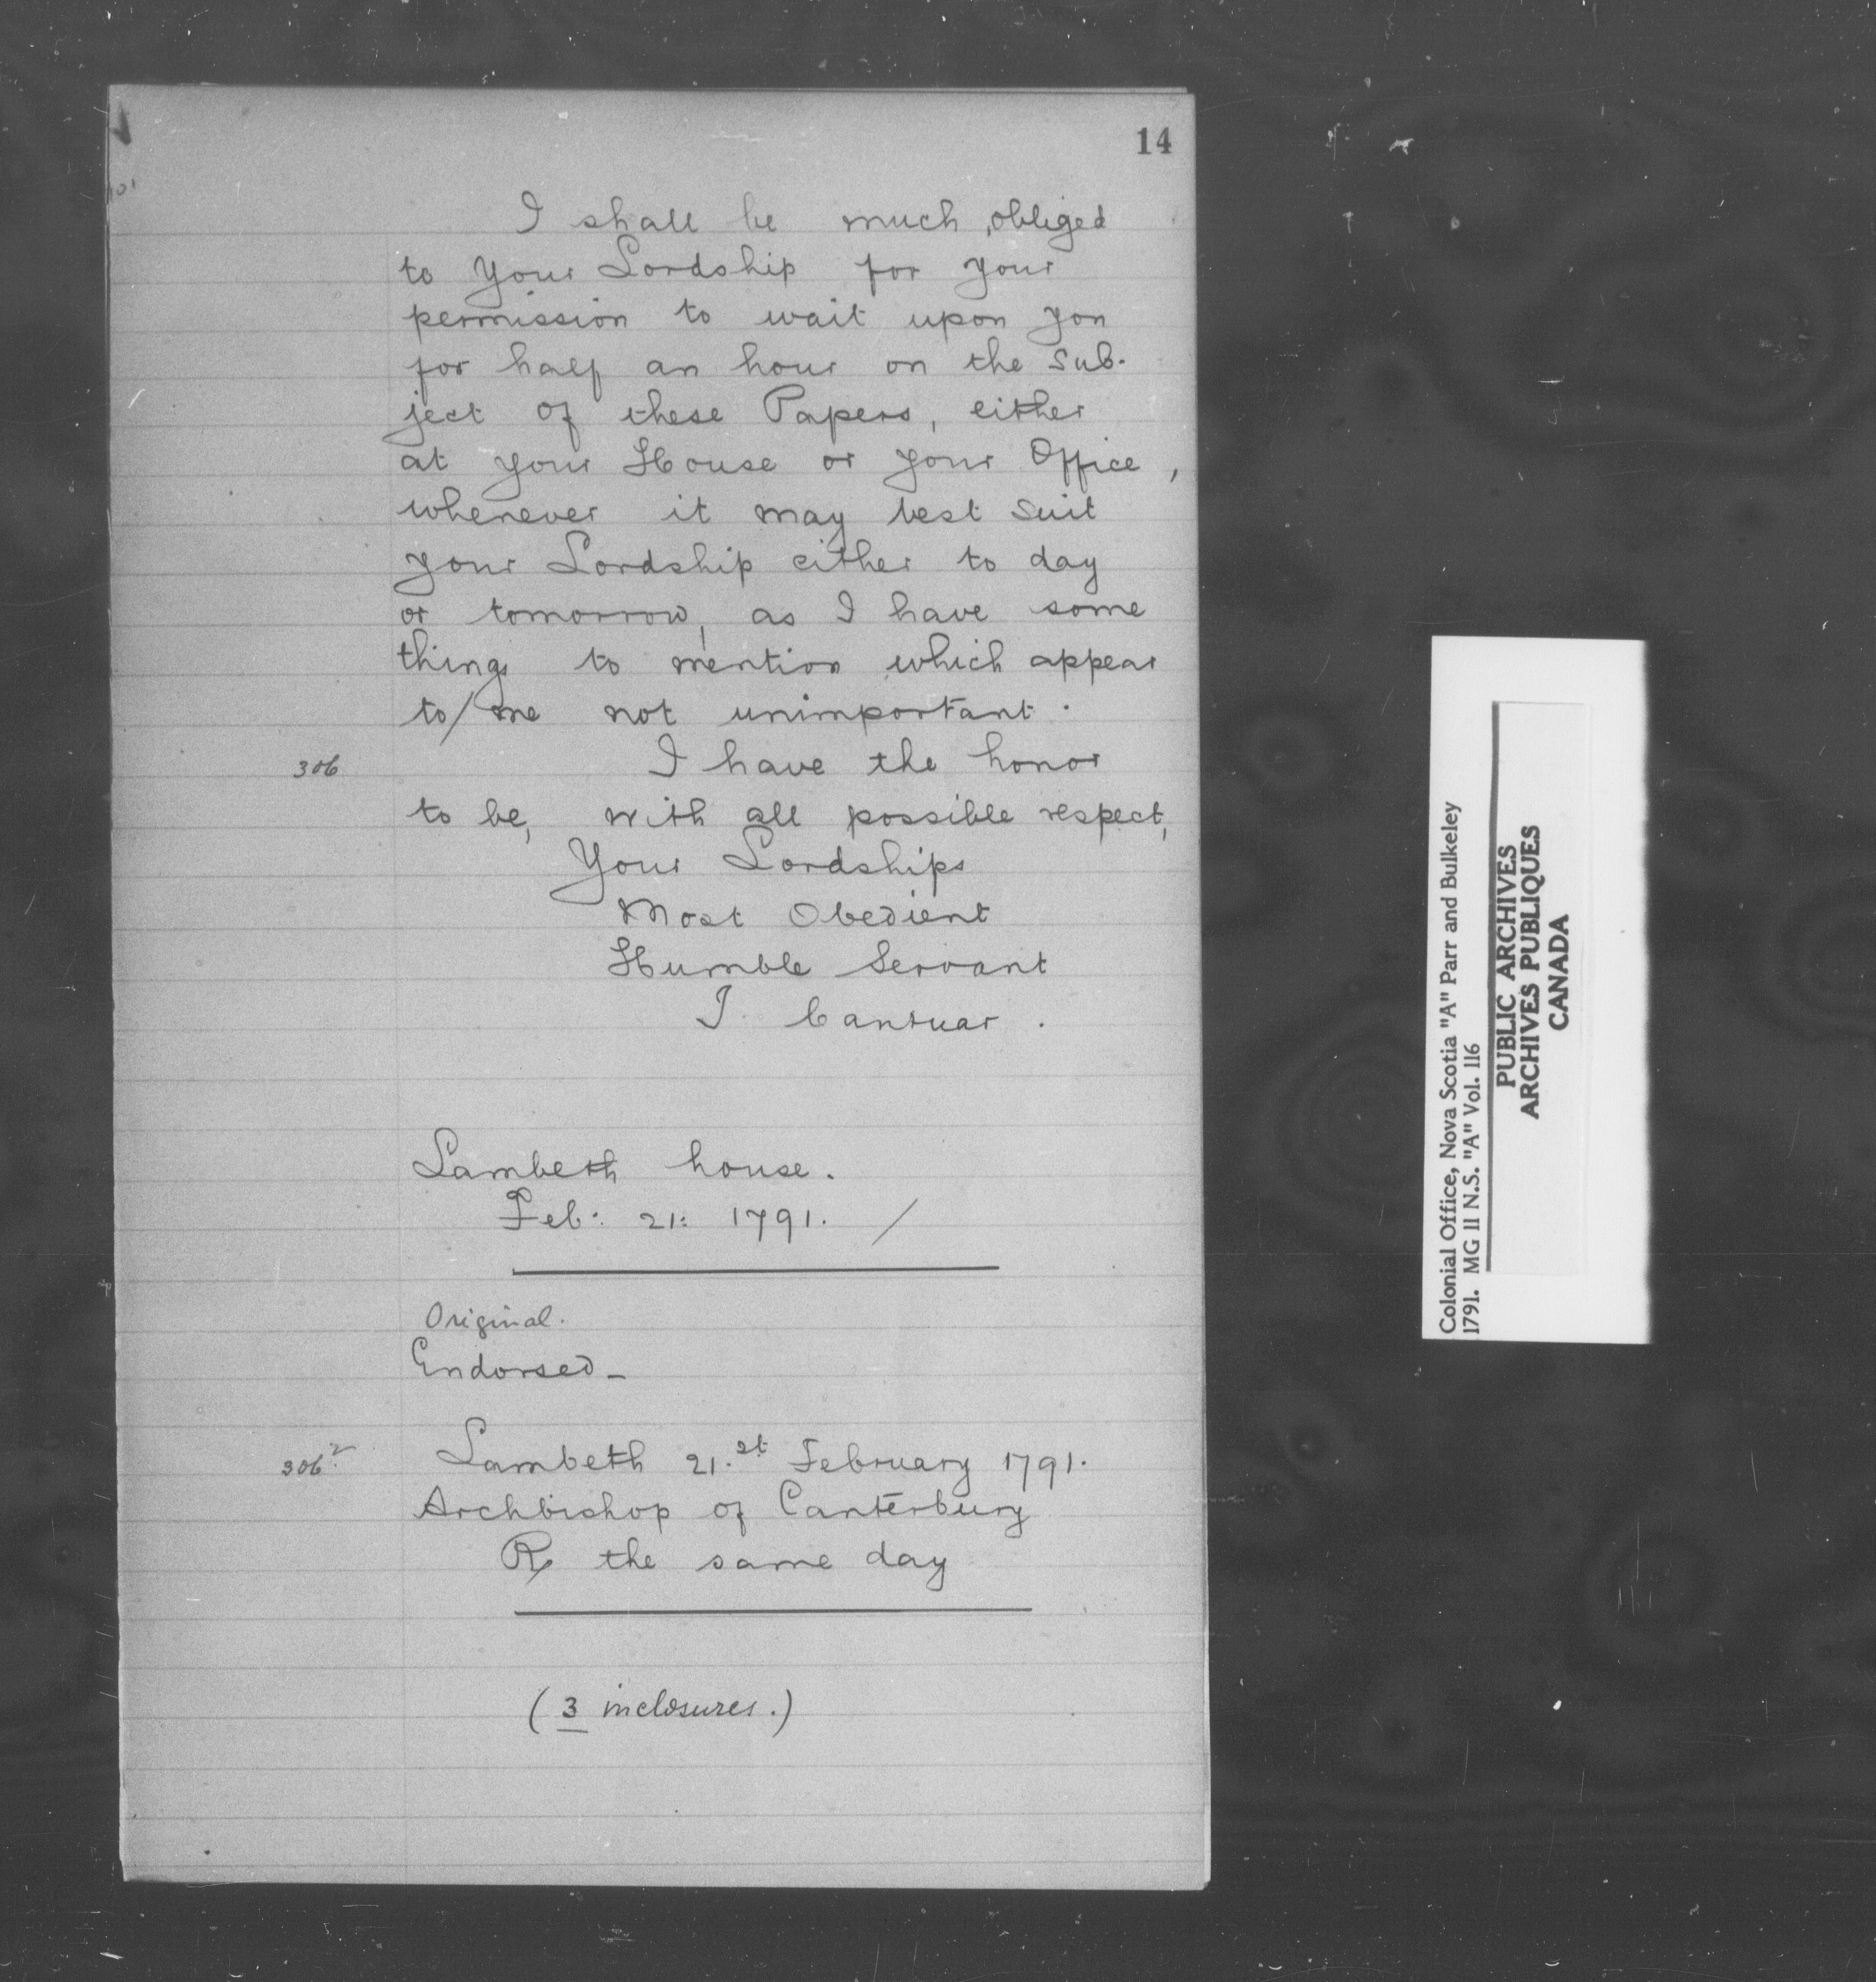 14
I shall be much obliged
to Your Lordship for your
permission to wait upon you
for half an hour on the Sub-
ject of these Papers, either
at your House or your Office,
whenever it may best suit
your Lordship either to day
or tomorrow, as I have some
things to mention which appear
to/me not unimportant.
306
I have the honor
to be, with all possible respect,
Your Lordships
Most Obedient
Humble Servant
J. Cantuar.
Lambeth house.
Feb: 21: 1791. /
Original.
Endorsed_
306 2
Lambeth 21.st February 1791.
Archbishop of Canterbury
R the same day
(3 inclosures.)
Colonial Office, Nova Scotia "A" Parr and Bulkeley
1791. MG 11 N.S. "A" Vol. 116
PUBLIC ARCHIVES
ARCHIVES PUBLIQUES
CANADA